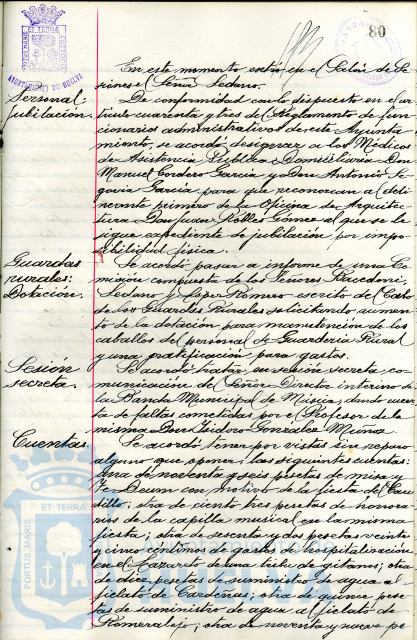 80
AYUNTAMIENTO DE HUELVA
En este momento entró en el Salón de Se-
siones el Señor Sedano.
Personal
jubilación.
De conformidad con lo dispuesto en el ar-
tículo cuarenta y tres del Reglamento de fun-
cionarios administrativos de este Ayunta
miento, se acordó designar a los Médicos
de Asistencia Pública Domiciliaria Don
Manuel Cordero García y Don Antonio Se-
govia García para que reconozcan al deli-
neante primero de la Oficina de Arquitec-
tura Don Juan Robles Gómez al que se le
sigue expediente de jubilación por impo
sibilidad física.
Guardas
rurales:
Dotación.
Se acordó pasar a informe de una Co
misión compuesta de los Señores
Sedano y López Romero escrito del Cabo
de los Guardas Rurales solicitando aumen-
to de la dotación para manutención de los
caballos del personal de Guardería Rural
y una gratificación para gastos.
Sesión
secreta.
Se acordó tratar, en sesión secreta, co-
municación del Señor Director interino de
la Banda Municipal de Música, dando cuen-
ta de faltas cometidas por el Profesor de la
misma Don Isidro González Muñiz
Cuentas
Se acordó tener por vistas sin reparo
alguno que oponer, las siguientes cuentas:
Una de noventa y seis pesetas de misa y
Te-Deum con motivo de la fiesta del Cau-
dillo; otra de ciento tres pesetas de honora-
rios de la capilla musical en la misma
fiesta; otra de setenta y dos pesetas veinte
y cinco céntimos de gastos de hospitalización
en el Lazareto de una tribu de gitanos; otra
de doce pesetas de suministro de agua al
fielato de Cardeñas; otra de quince pese
tas de suministro de agua al fielato de
Romeralejo; otra de noventa y nueve pe
PORTUS MARIS
ET TERRAE
CUSTODIA